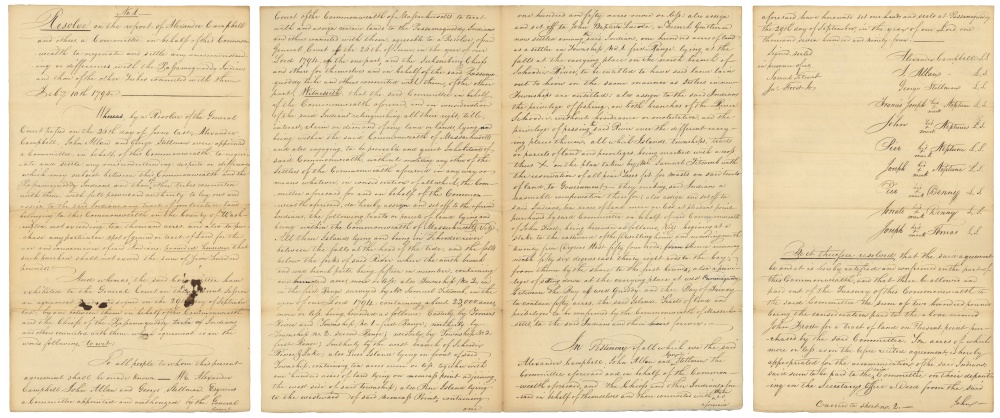 No. 1.
Resolve on the report of Alexander Campbell
and others a Committee on behalf of this Common-
wealth to negotiate and settle any misunderstand-
ing or differences with the Passamaquoddy Indians
and those of the other Tribes connected with them
Feb.y 10th 1795.
Whereas by a Resolve of the General
Court passed on the 26th day of June last, Alexander
Campbell, John Allan and George Stillman were appointed
a Committee on behalf of this Commonwealth to negotiate
and settle any misunderstanding, dispute or difference
which may subsist between this Commonwealth and the
Passamaquoddy Indians and those of other tribes connected
with them. And said Committee were authorized to lay out and
assign to the said Indians any tract of particular land
belonging to this Commonwealth in the County of Wash-
ington, not exceeding ten thousand acres and also to pur-
chase any particular spot deemed in part of land for the
use and convenience of said Indians, provided however, that
such purchase shall not exceed the sum of five hundred
pounds.
And whereas, the said Committee have
exhibited to the General Court as their report upon
an agreement signed on the 29th of September
by and between them on behalf of this Commonwealth
and the Chiefs of the Passamaquoddy tribe of Indians
and others connected with them, which agreement is in the
words following to wit;
To all people to whom this present
agreement shall be made known — We, Alexander
Campbell, John Allan and George Stillman, Esquires
a Committee appointed and authorized by the General
Court
Court of the Commonwealth of Massachusetts to treat
with and assign certain lands to the Passamaquoddy Indians
and others connected with them, agreeable to a Resolve of the
General Court of the 26th of June, in the year of our
Lord 1794, of the one part, and the subscribing Chiefs
and others for themselves and on behalf of the said Passama-
quoddy tribe and others connected with them, of the other
part, Witnesseth, that the said Committee on behalf
of the Commonwealth aforesaid, and in consideration
of the said Indians relinquishing all their right, title,
interest, claim or demand of any land or lands lying and
being within the said Commonwealth of Massachusetts
and also engaging to be peaceable and quiet Inhabitants of
said Commonwealth without molesting any other of the
settlers of the Commonwealth aforesaid in any way or
means whatever, in consideration of all which, the Com-
mittee aforesaid for and on behalf of the Common-
wealth aforesaid, do hereby assign and set off to the aforesaid
Indians, the following tracts or parcels of land lying and
being within the Commonwealth of Massachusetts, viz
All those Islands lying and being in Schoodic river
between the falls at the head of the tide, and the falls
below the forks of said River where the north branch
and west branch parts, being fifteen in number, containing
one hundred acres, more or less; also Township No. 2, in
the first Range surveyed by Mr. Samuel Titcomb, in the
year of our Lord 1794, containing about 23,000 acres,
more or less, being bounded as follows: Easterly by Tomers
River and Township No. 1 first Range; southerly by
Township No. 2. second Range; westerly by Township No. 3.
first Range; Northerly by the west branch of Schoodic
River & Lake; also Lues Island lying in front of said
Township, containing ten acres more or less, together with
one hundred acres of land lying on nemcass point, adjoining
the west side of said township; also Pine Island lying
to the westward of said nemcass Point, containing
one
one hundred and fifty acres more or less; also assign
and set off to John Baptiste Lacote, a French Gentleman
now settled among said Indians, one hundred acres of land
as a settler in Township No. 1, first Range, lying at the
falls at the carrying place on the north branch of
Schoodic River, to be entitled to have said land laid
out to him in the same manner as settlers in new
Townships are entitled; also assign to the said Indians
the privilege of fishing on both branches of the River
Schoodic without hindrance or molestation, and the
privilege of passing the said River over the different carry-
ing places thereon; all which Islands, townships, tracts
or parcels of land and privileges being marked with a cross
thus X on the plan taken by Mr. Samuel Titcomb with
the reservation of all pine trees fit for masts on said tracts
of land, to Government, they making said Indians a
reasonable compensation therefor; also assign and set off to
said Indians, ten acres of land more or less at pleasant point
purchased by said Committee on behalf of said Commonwealth
of John Frost, being bounded as follows, viz beginning at a
stake to the eastward of the dwelling house and running north
twenty five degrees West fifty four rods, from thence running
north fifty six degrees east thirty eight rods to the bay;
from thence by the shore to the first bounds; also a privi-
lege of setting down at the carrying place at West Quoddy
between the Bay of West Quoddy and the Bay of Fundy
to contain fifty acres, the said Islands, tracts of land and
privileges to be confirmed by the Commonwealth of Massachu-
setts to the said Indians and their heirs forever.
In Testimony of all which, we the said
Alexander Campbell, John Allan and George Stillman the
Committee aforesaid and in behalf of the Common-
wealth aforesaid, and the Chiefs and other Indians afore-
said in behalf of themselves and those connected with them as
aforesaid
aforesaid have hereunto set our hands and seals at Passamaquoddy
the 29th day of September, in the year of our Lord one
thousand seven hundred and ninety four —
Signed, sealed
in presence of us
Samuel Titcomb
Jno. Frost
Alexander Campbell L.S.
J. Allan L.S.
George Stillman L.S.
Francis Joseph his X mark Neptune L.S.
John his X mark Neptune L.S.
Pier his X mark Neptune L.S.
Joseph his X mark Neptune L.S.
Pier his X mark Denny L.S.
Jonale his X mark Denny L.S.
Joseph his X mark Tomas L.S.
Be it therefore resolved, that the said agreement
be and it is hereby ratified and confirmed on the part of
this Commonwealth, and that there be allowed and
paid out of the Treasury of this Commonwealth to
the said Committee the sum of two hundred pounds
being the consideration paid to the above named
John Frost for a tract of land on Pleasant point pur-
chased by the said Committee. Ten acres of which
more or less upon the before recited agreement is hereby
appropriated for the use of the said Indians
said sum to be paid to the Committee on their deposit-
ing in the Secretary's Office a Deed from the said
John
Carried to sheet no. 2.